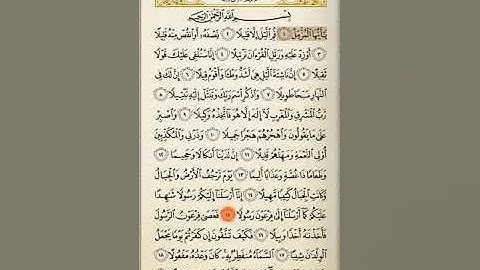 بِسْمِ اللَّهِ الرَّحْمَٰنِ الرَّحِيمِ
يَا أَيُّهَا الْمُزَّمِّلُ ١ قُمِ اللَّيْلَ إِلَّا قَلِيلًا ٢ نِّصْفَهُ أَوِ انقُصْ مِنْهُ قَلِيلًا
٣ أَوْ زِدْ عَلَيْهِ وَرَتِّلِ الْقُرْآنَ تَرْتِيلًا ٤ إِنَّا سَنُلْقِي عَلَيْكَ قَوْلًا
ثَقِيلًا ٥ إِنَّ نَاشِئَةَ اللَّيْلِ هِيَ أَشَدُّ وَطْئًا وَأَقْوَمُ قِيلًا ٦ إِنَّ لَكَ فِي
النَّهَارِ سَبْحًا طَوِيلًا ٧ وَاذْكُرِ اسْمَ رَبِّكَ وَتَبَتَّلْ إِلَيْهِ تَبْتِيلًا ٨
رَّبُّ الْمَشْرِقِ وَالْمَغْرِبِ لَا إِلَٰهَ إِلَّا هُوَ فَاتَّخِذْهُ وَكِيلًا ٩ وَاصْبِرْ
عَلَىٰ مَا يَقُولُونَ وَاهْجُرْهُمْ هَجْرًا جَمِيلًا ١٠ وَذَرْنِي وَالْمُكَذِّبِينَ
أُولِي النَّعْمَةِ وَمَهِّلْهُمْ قَلِيلًا ١١ إِنَّ لَدَيْنَا أَنكَالًا وَجَحِيمًا ١٢
وَطَعَامًا ذَا غُصَّةٍ وَعَذَابًا أَلِيمًا ١٣ يَوْمَ تَرْجُفُ الْأَرْضُ وَالْجِبَالُ
وَكَانَتِ الْجِبَالُ كَثِيبًا مَّهِيلًا ١٤ إِنَّا أَرْسَلْنَا إِلَيْكُمْ رَسُولًا شَاهِدًا
عَلَيْكُمْ كَمَا أَرْسَلْنَا إِلَىٰ فِرْعَوْنَ رَسُولًا ١٥ فَعَصَىٰ فِرْعَوْنُ الرَّسُولَ
فَأَخَذْنَاهُ أَخْذًا وَبِيلًا ١٦ فَكَيْفَ تَتَّقُونَ إِن كَفَرْتُمْ يَوْمًا يَجْعَلُ
الْوِلْدَانَ شِيبًا ١٧ السَّمَاءُ مُنفَطِرٌ بِهِ كَانَ وَعْدُهُ مَفْعُولًا ١٨